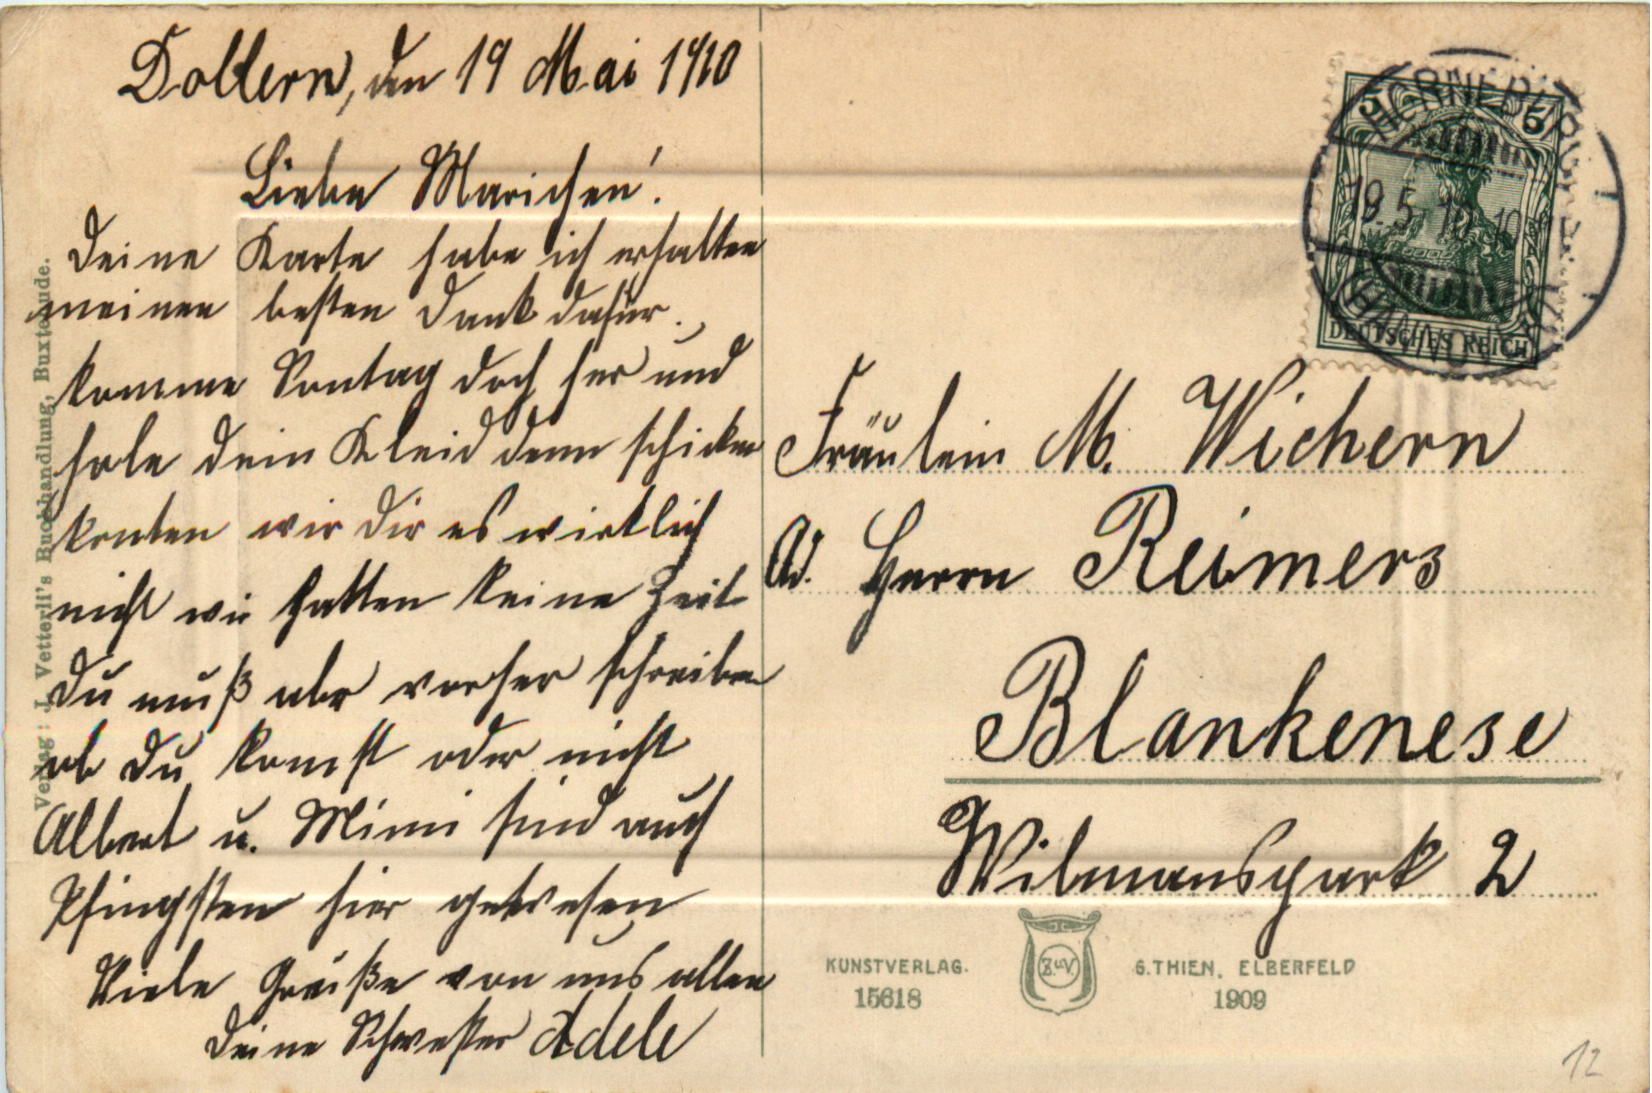 Dollern, den 19 Mai 1910
Liebe Mariechen!
Deine Karte habe ich erhalten
meinen besten Dank dafür.
komme Sontag doch her und
hole dein Kleid denn schicken
konten wir dir es wirklich
nicht wir hatten keine Zeit
Du muß abr vorher schreiben
ob du komst oder nicht
Albert u. Mimi sind auch
Pfingsten hier gewesen
Viele Grüße von uns allen
Deine Schwester Adele
Verlag: J. Vetterli's Buchhandlung, Buxtehude.
5 5
DEUTSCHES REICH
HORNEBURG
19.5.10
HANNOVER
Fräulein M. Wichern
Ad. Herrn Reimers
Blankenese
Wilmanspark 2
KUNSTVERLAG. G. THIEN, ELBERFELD
15618 1909
12